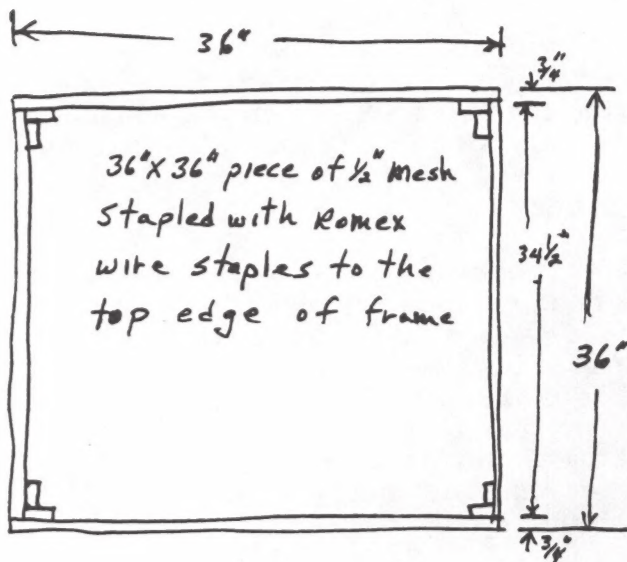 36"
3/4"
36"X 36" piece of 1/2" mesh
stapled with Romex
wire staples to the
top edge of frame
34 1/2"
36"
3/4"